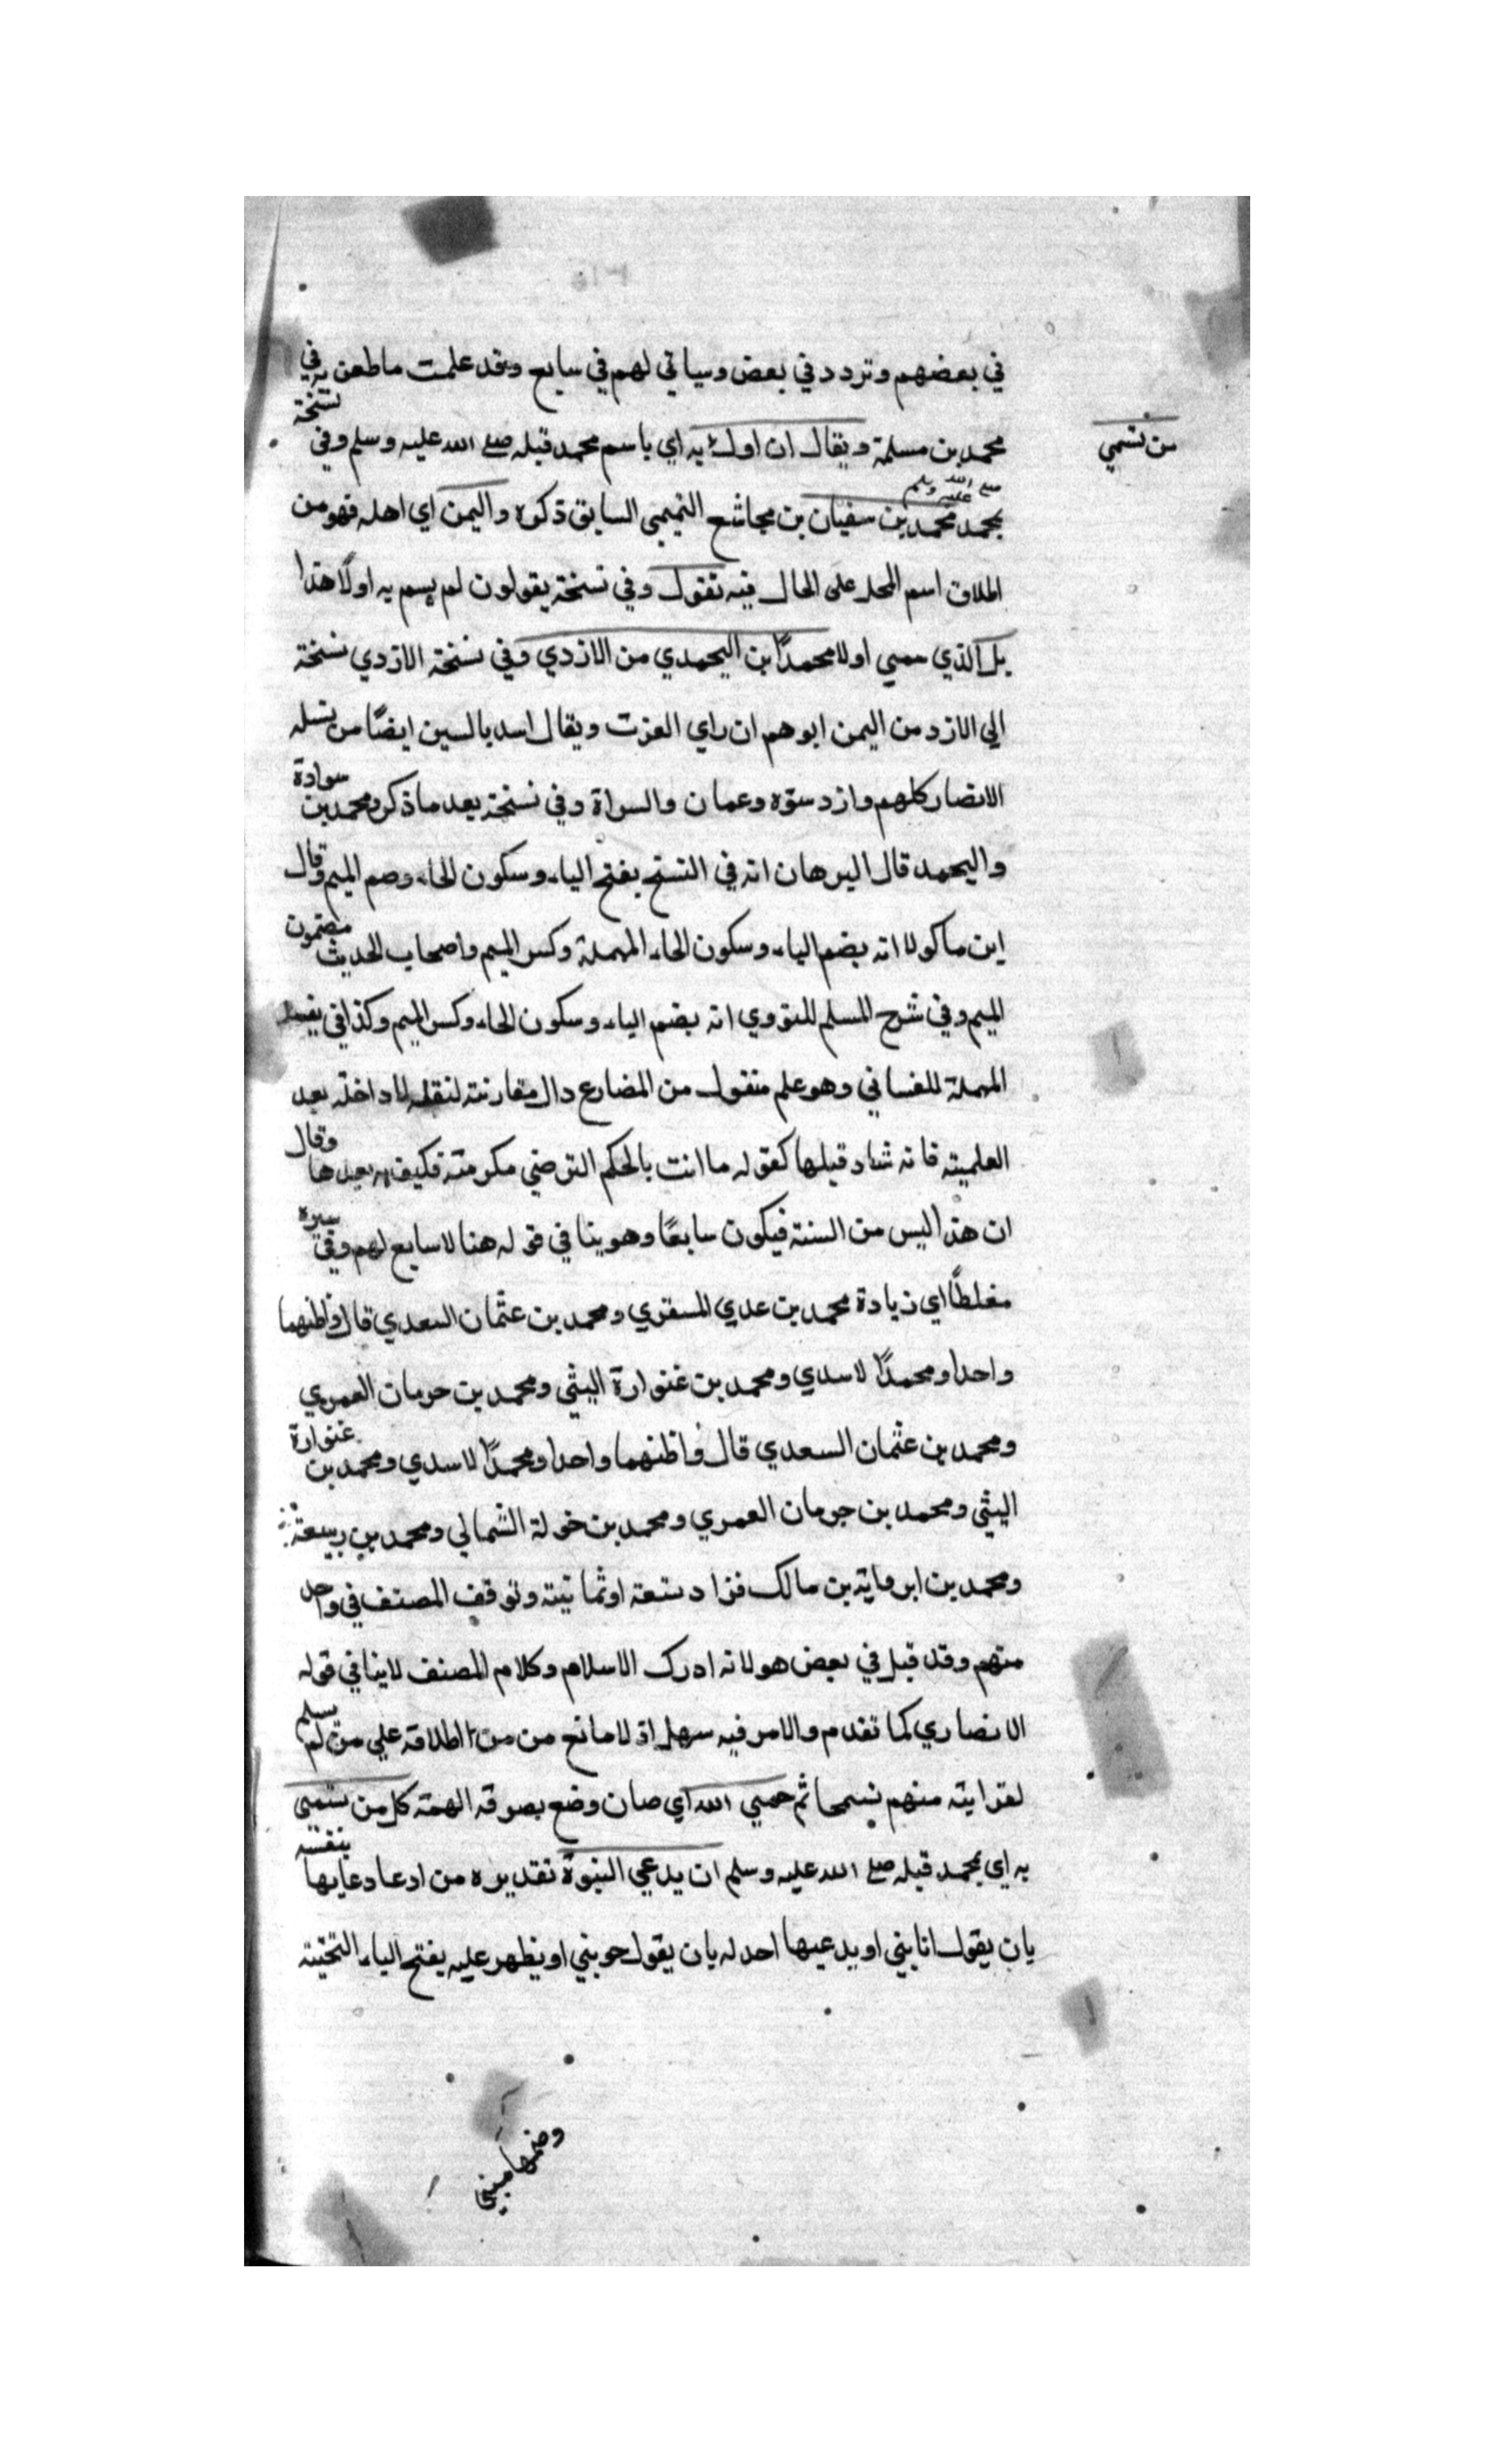 في بعضهم وتردد في بعض وسياتي لهم في سابع وقد علمت ما طعن به في
محمد بن مسلمة ويقال ان اول به اي باسم محمد قبله صلى الله عليه وسلم وفي نسخة
من تسمي
صلى الله عليه وسلم
بمحمد محمد بن سفيان بن مجاشع التميمي السابق ذكره واليمن اي اهله فهو من
اطلاق اسم المحل على الحال فيه تقول وفي نسخة يقولون لم يسم به اولا هذا
بل الذي سمي اولا محمدًا بن اليحمدي من الازدي وفي نسخة الازدي نسخة
الي الازد من اليمن ابوهم ان راي العزت ويقال اسد بالسين ايضًا من نسله
الانصار كلهم وازد سنوه وعمان والسراة وفي نسخة بعد ما ذكر ومحمد بن سوادة
واليحمد قال البرهان انه في النسخ بفتح الياء وسكون الحاء وضم الميم وقال
ابن ماكولا انه بضم الياء وسكون الحاء المهملة وكسر الميم واصحاب الحديث مضمون
الميم وفي شرح المسلم للنووي انه بضم الياء وسكون الحاء وكسر الميم وكذا في
المهملة للغساني وهو علم منقول من المضارع دال مقارنته لنقله لاداخله بعد
العلميته فانه شاد قبلها كقوله ما انت بالحكم الترضي مكرمته فكيف به بعدها وقال
ان هذا ليس من السنة فيكون سابعًا وهو ينافي قوله هنا لا سابع لهم وفي سيره
مغلطًا اي زيادة محمد بن عدي المسقري ومحمد بن عثمان السعدي قال واظنهما
واحدا ومحمدًا لاسدي ومحمد بن غنوارة اليثي ومحمد بن حرمان العمري
ومحمد بن عثمان السعدي قال واظنهما واحدا ومحمدًا لاسدي ومحمد بن غنوارة
اليثي ومحمد بن جرمان العمري ومحمد بن خولة الشمالي ومحمد بن ربيعة
ومحمد بن ابرماية بن مالك فزاد ستعة اوثمانيته وتوقف المصنف في واحد
منهم وقد قيل في بعض هولا انه ادرك الاسلام وكلام المصنف لاينافي قوله
الانصاري كما تقدم والامر فيه سهل اذ لا مانع من من اطلاقه علي من لم يسلم
لقرابته منهم نسمحا ثم حمي الله اي صان وضع بصوقه الهمته كل من تسمى
به اي بمحمد قبله صلى الله عليه وسلم ان يدعي النبوة تقديره من ادعا دعايها بنفسه
بان يقول انا نبي او يدعيها احد له بان يقول هو نبي او يظهر عليه بفتح الياء التحتية
وضمها مبني